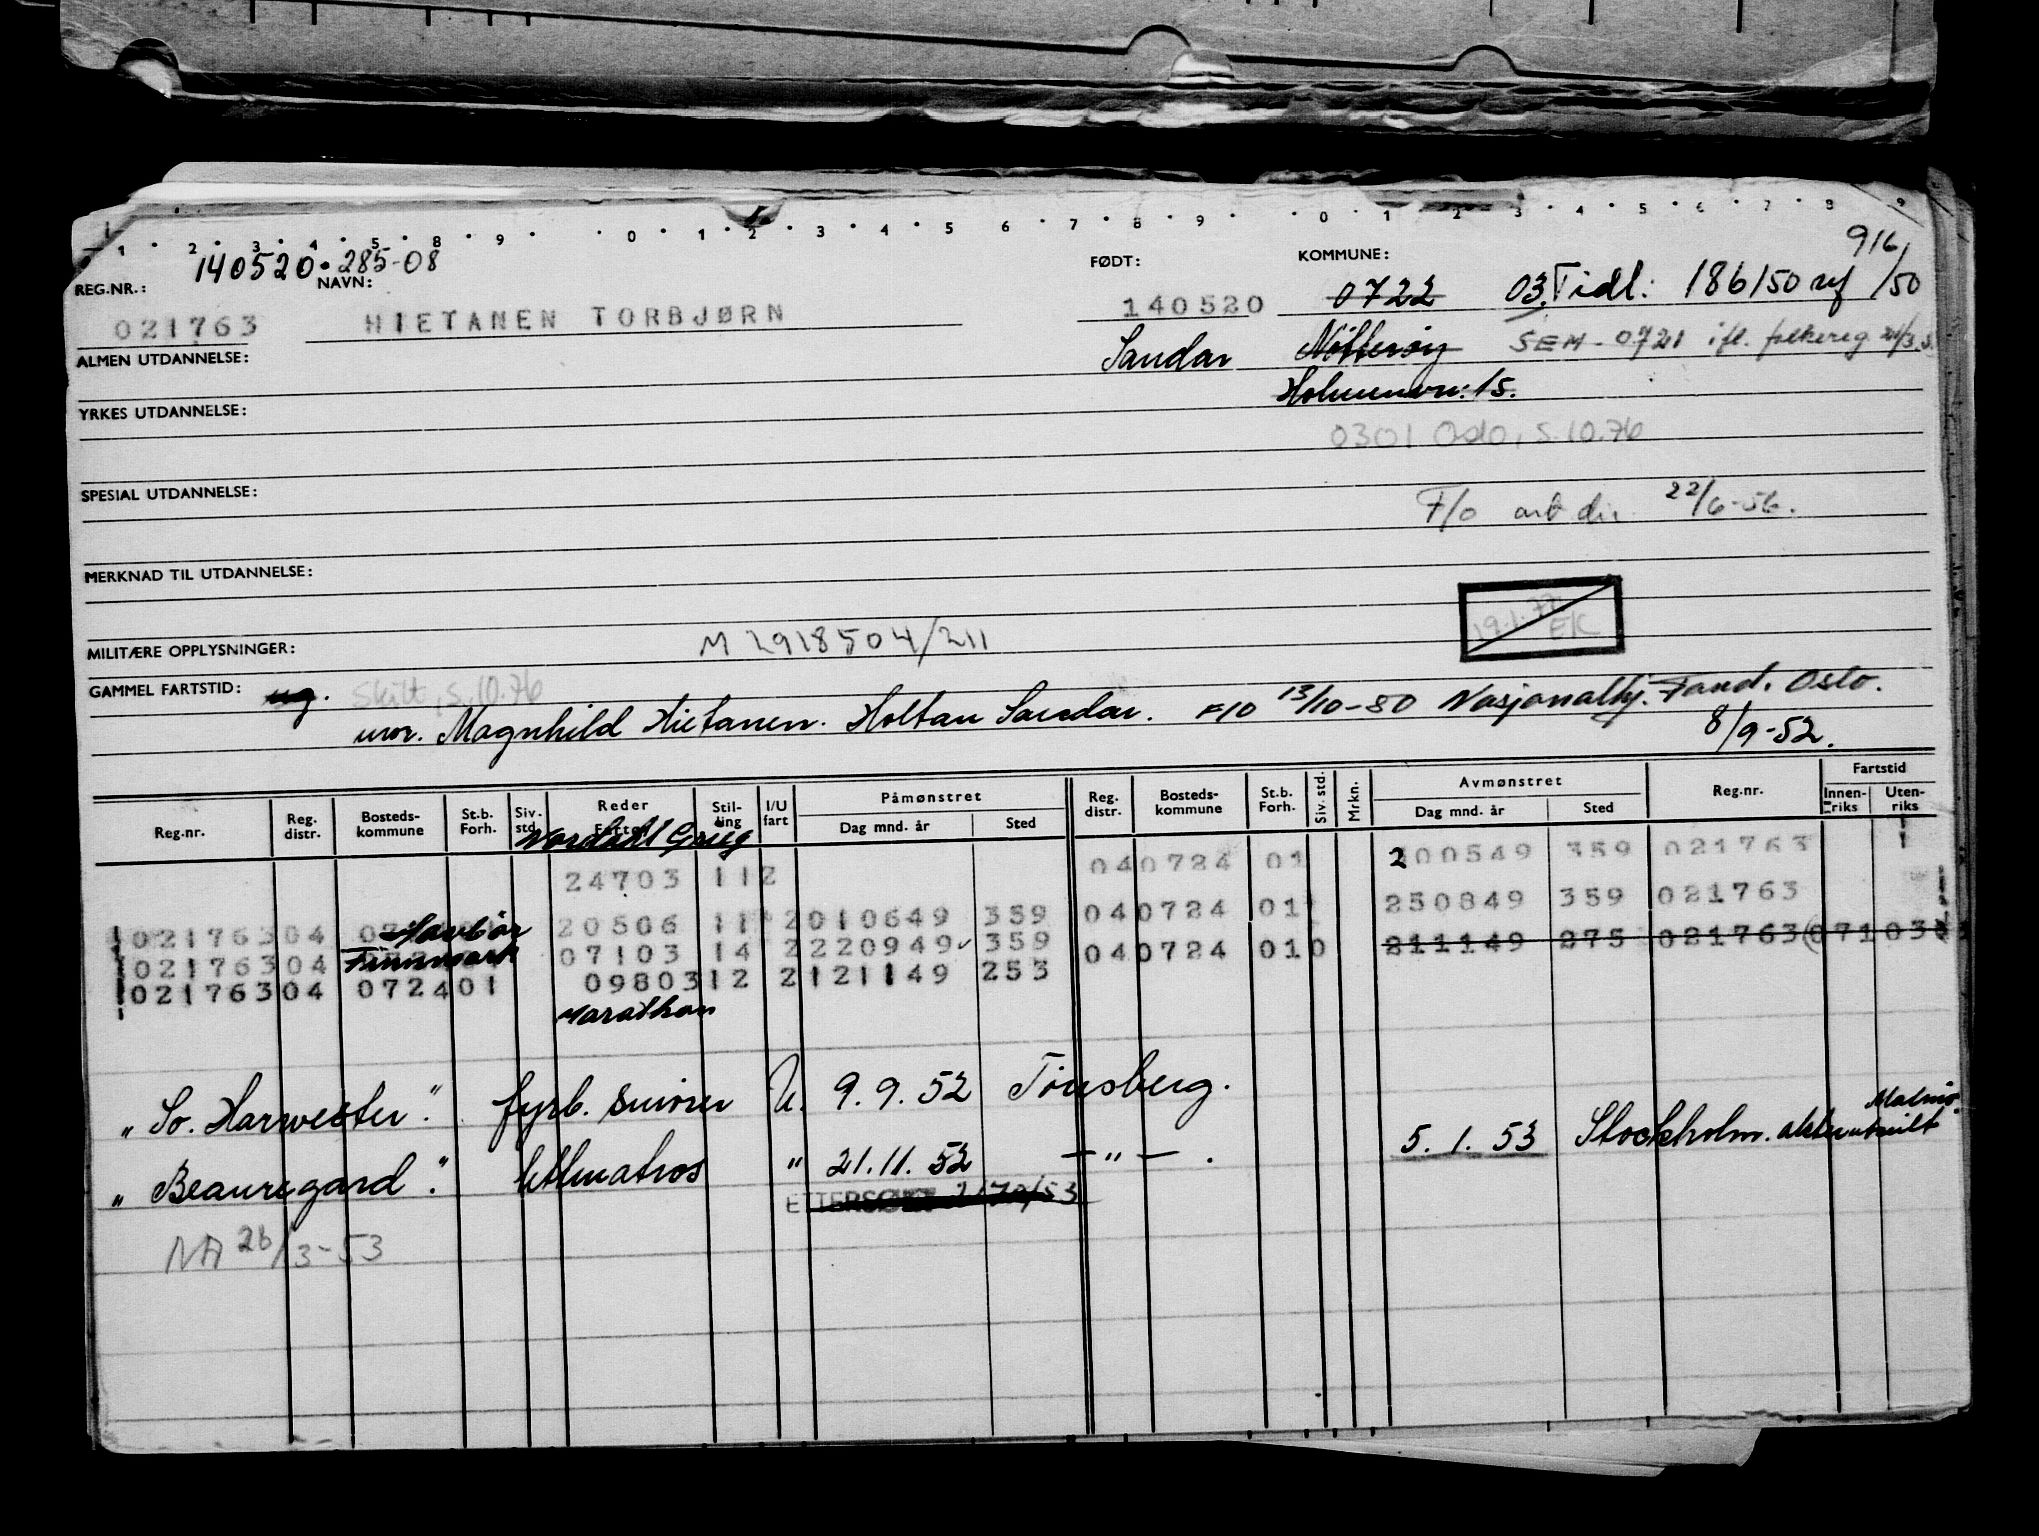 1 2 3 4 5 8 9 0 1 2 3 4 5 6 7 8 9 0 1 2 3 4 5 6 7 8 9
916/50
REG.NR.: 140520.285-08 NAVN: FØDT: KOMMUNE:
021763 HIETANEN TORBJØRN 140520 0722 03. Tidl: 186150
ALMEN UTDANNELSE: Sandar Nøtterøy SEM-0721 ifl. folkereg
YRKES UTDANNELSE: Holmenvn: 15.
0301 Oslo, S.10.76
SPESIAL UTDANNELSE:
F/o arb dir 22/6-56.
MERKNAD TIL UTDANNELSE:
19.1.77 EK
MILITÆRE OPPLYSNINGER: M 2918504/211
GAMMEL FARTSTID: ug. Skilt, S.10.76
mor. Magnhild Hietanen. Holtan Sandar. F/o 13/10-50 Nasjonalhj. Fand. Oslo.
8/9-52.
Reg.nr. Reg. distr. Bosteds-kommune St.b. Forh. Siv. std. Reder Fartøy Stil-ling I/U fart Påmønstret Dag mnd. år Sted Reg. distr. Bosteds-kommune St.b. Forh. Siv. std. Mrkn. Avmønstret Dag mnd. år Sted Reg.nr. Fartstid Innen-riks Uten-riks
Nordahl Grieg
24703 112 04 0724 01 200549 359 021763
021763 04 Havbør 20506 11 2 010649 359 04 0724 01 250849 359 021763
021763 04 Finnmark 07103 14 2 220949 359 04 0724 01 0 211149 275 021763 071030
021763 04 0724 01 09803 12 2 121149 253
Marathon
"So. Harvester". fyrb. smører U. 9.9.52 Tönsberg.
"Beauregard". lettmatros " 21.11.52 -"-. 5.1.53 Stockholm. Malmö
ETTERSØKT
NA 26/3-53